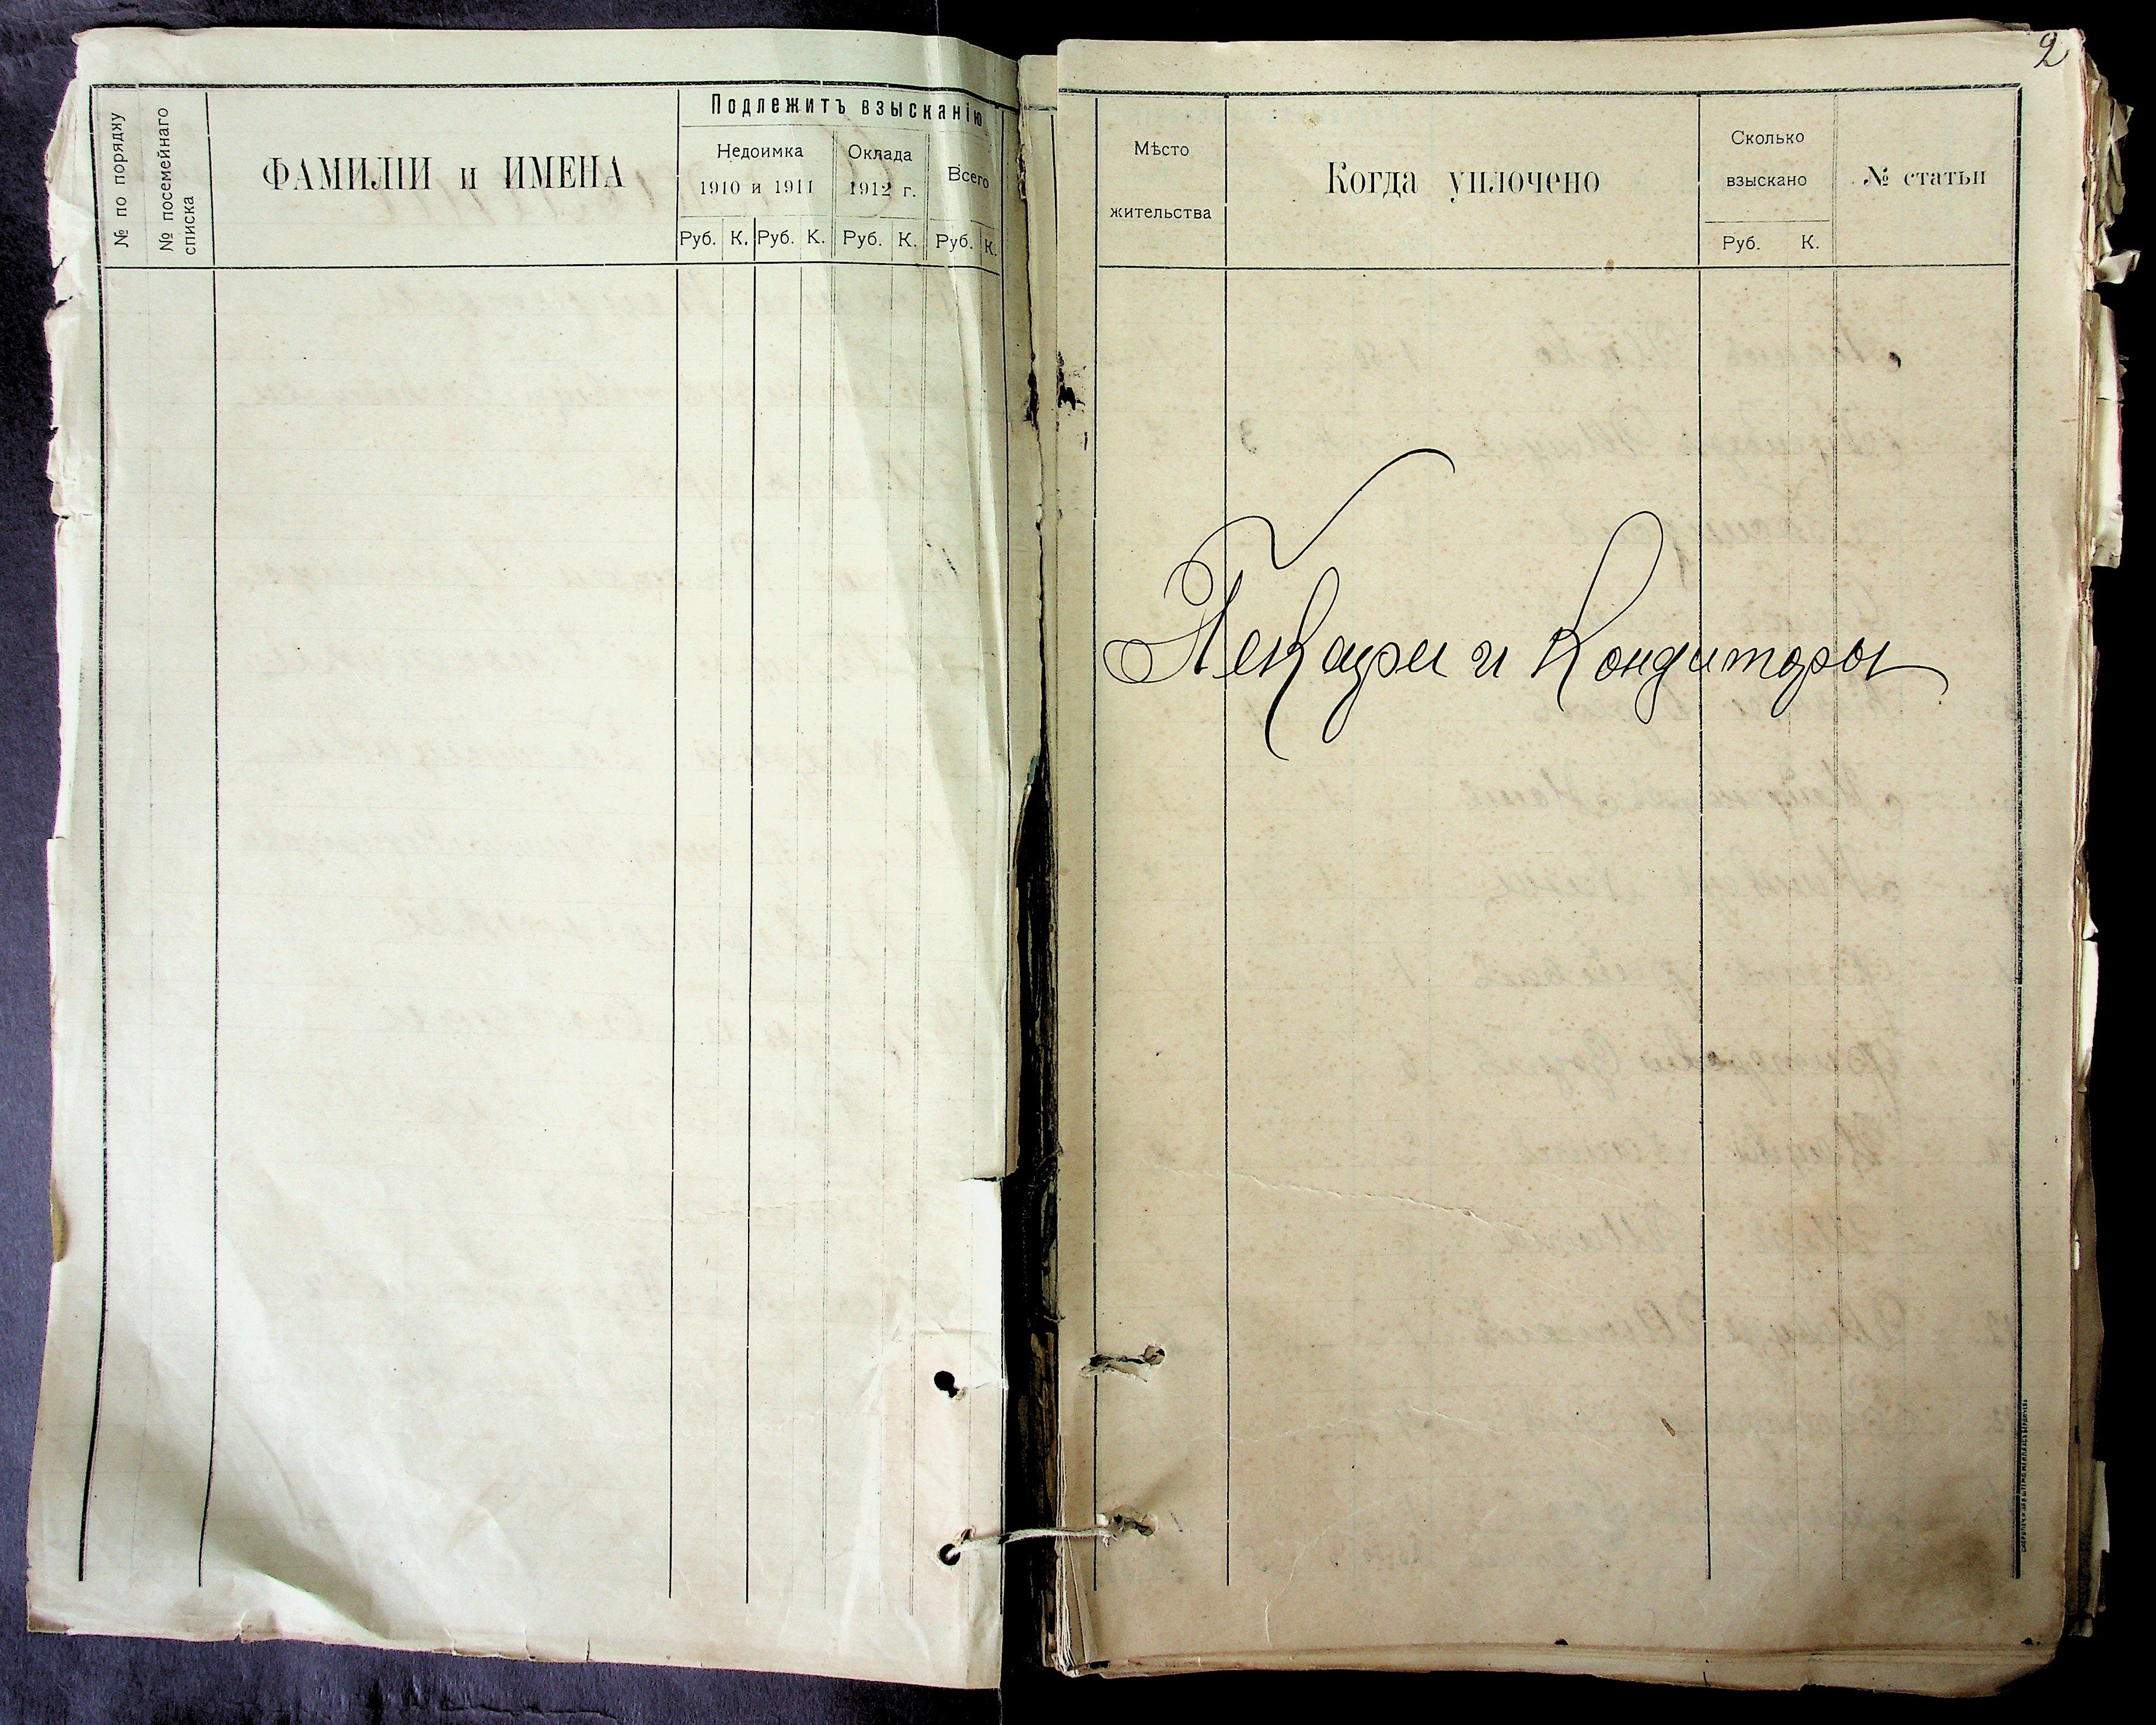 № по порядку
№ посемейнаго списка
ФАМИЛІИ и ИМЕНА
Подлежитъ взысканію
Недоимка
1910 и 1911
Оклада
1912 г.
Всего
Руб. К. Руб. К. Руб. К. Руб. К.
2
Мѣсто
жительства
Когда уплочено
Сколько
взыскано
Руб. К.
№ статьи
Пекари и Кондиторы